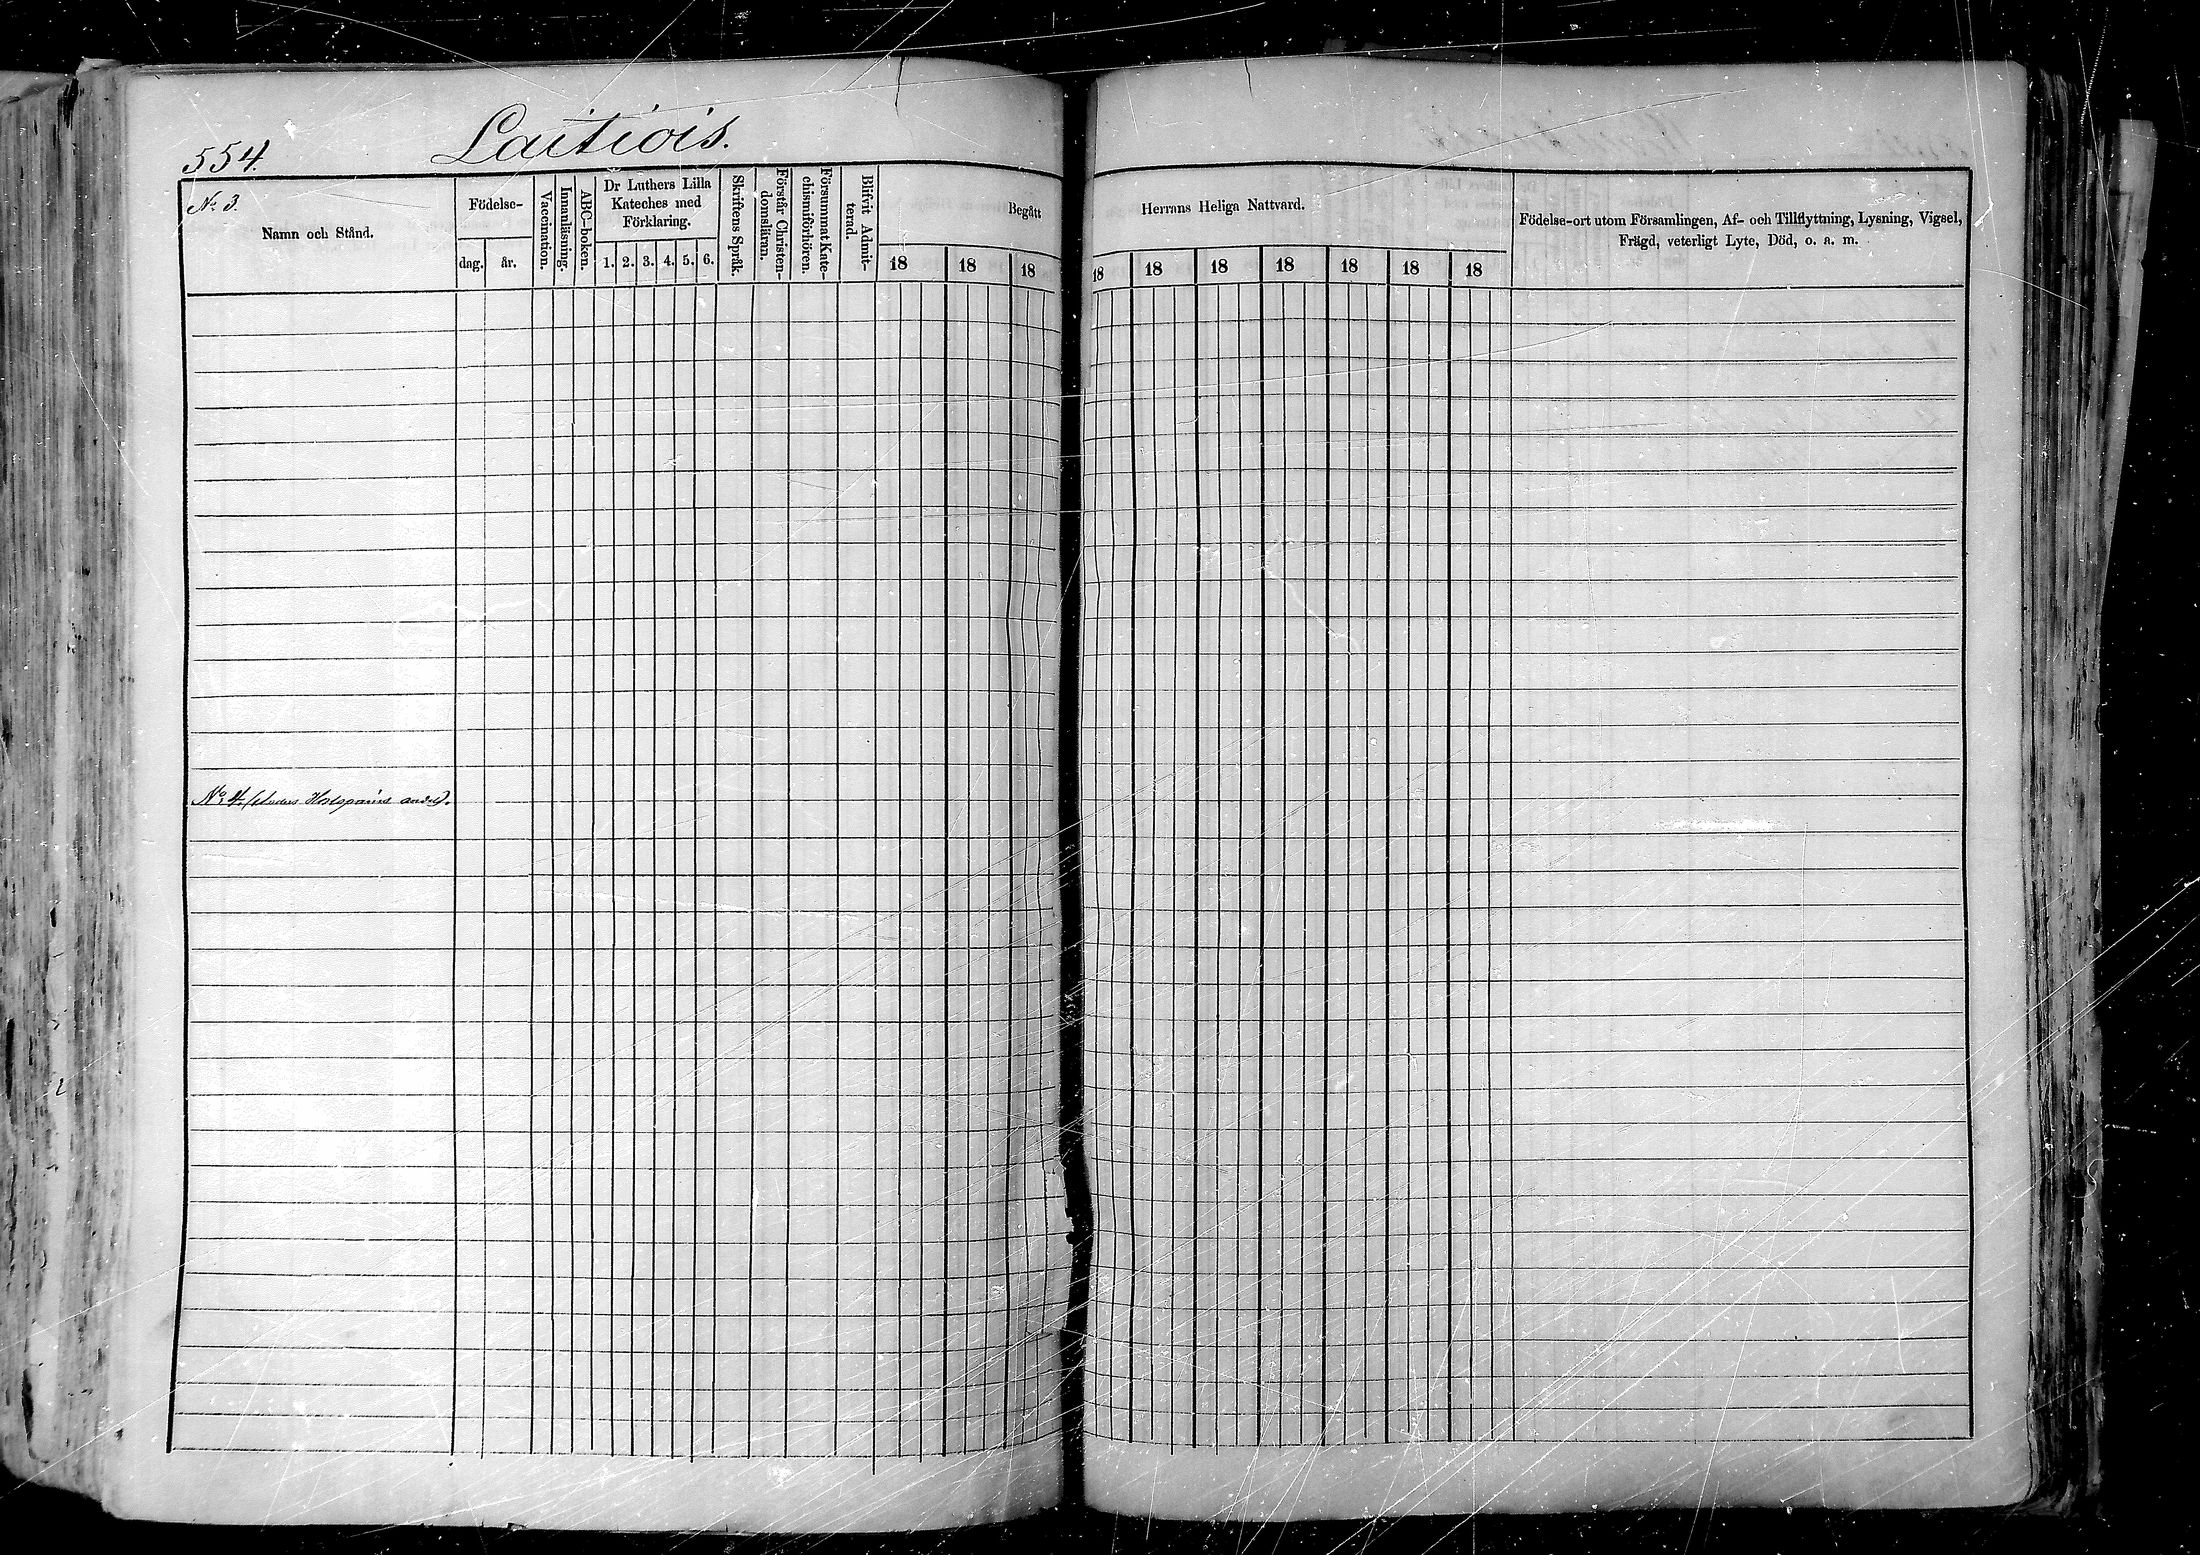 554.
Laitiois.
No 3.
Namn och Stånd.
Födelse-
dag.
år.
Vaccination.
Innanläsning.
ABC-boken.
Dr Luthers Lilla
Kateches med
Förklaring.
1. 2. 3. 4. 5. 6.
Skriftens Språk.
Förstår Christen-
domsläran.
Försummat Kate-
chismiförhören.
Blifvit Admit-
terad.
Begått
18 18 18
Herrans Heliga Nattvard.
18 18 18 18 18 18 18
Födelse-ort utom Församlingen, Af- och Tillflyttning, Lysning, Vigsel,
Frägd, veterligt Lyte, Död, o. a. m.
No 4. (